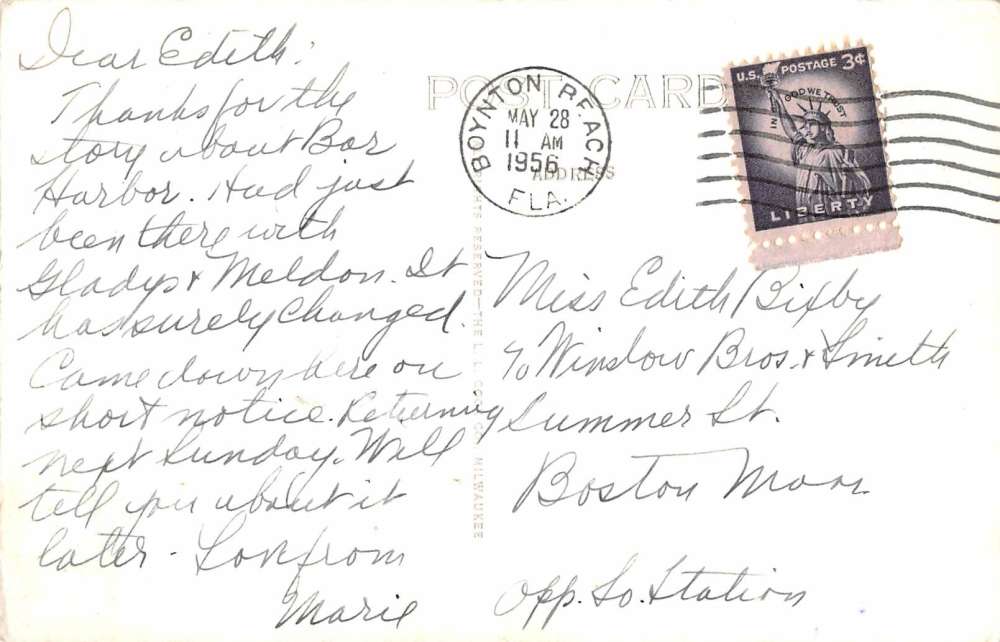 Dear Edith:
Thanks for the
story about Bar
Harbor. Had just
been there with
Gladys & Meldon. It
has surely changed.
Came down here on
short notice. Returning
next Sunday. Will
tell you about it
later - Love from
Marie
POST CARD
ADDRESS
BOYNTON BEACH
MAY 28
11 AM
1956
FLA.
U.S. POSTAGE 3¢
IN GOD WE TRUST
LIBERTY
Miss Edith Bixby
c/o Winslow Bros. & Smith
Summer St.
Boston Mass.
Opp. So. Station
RIGHTS RESERVED—THE L. L. COOK CO., MILWAUKEE